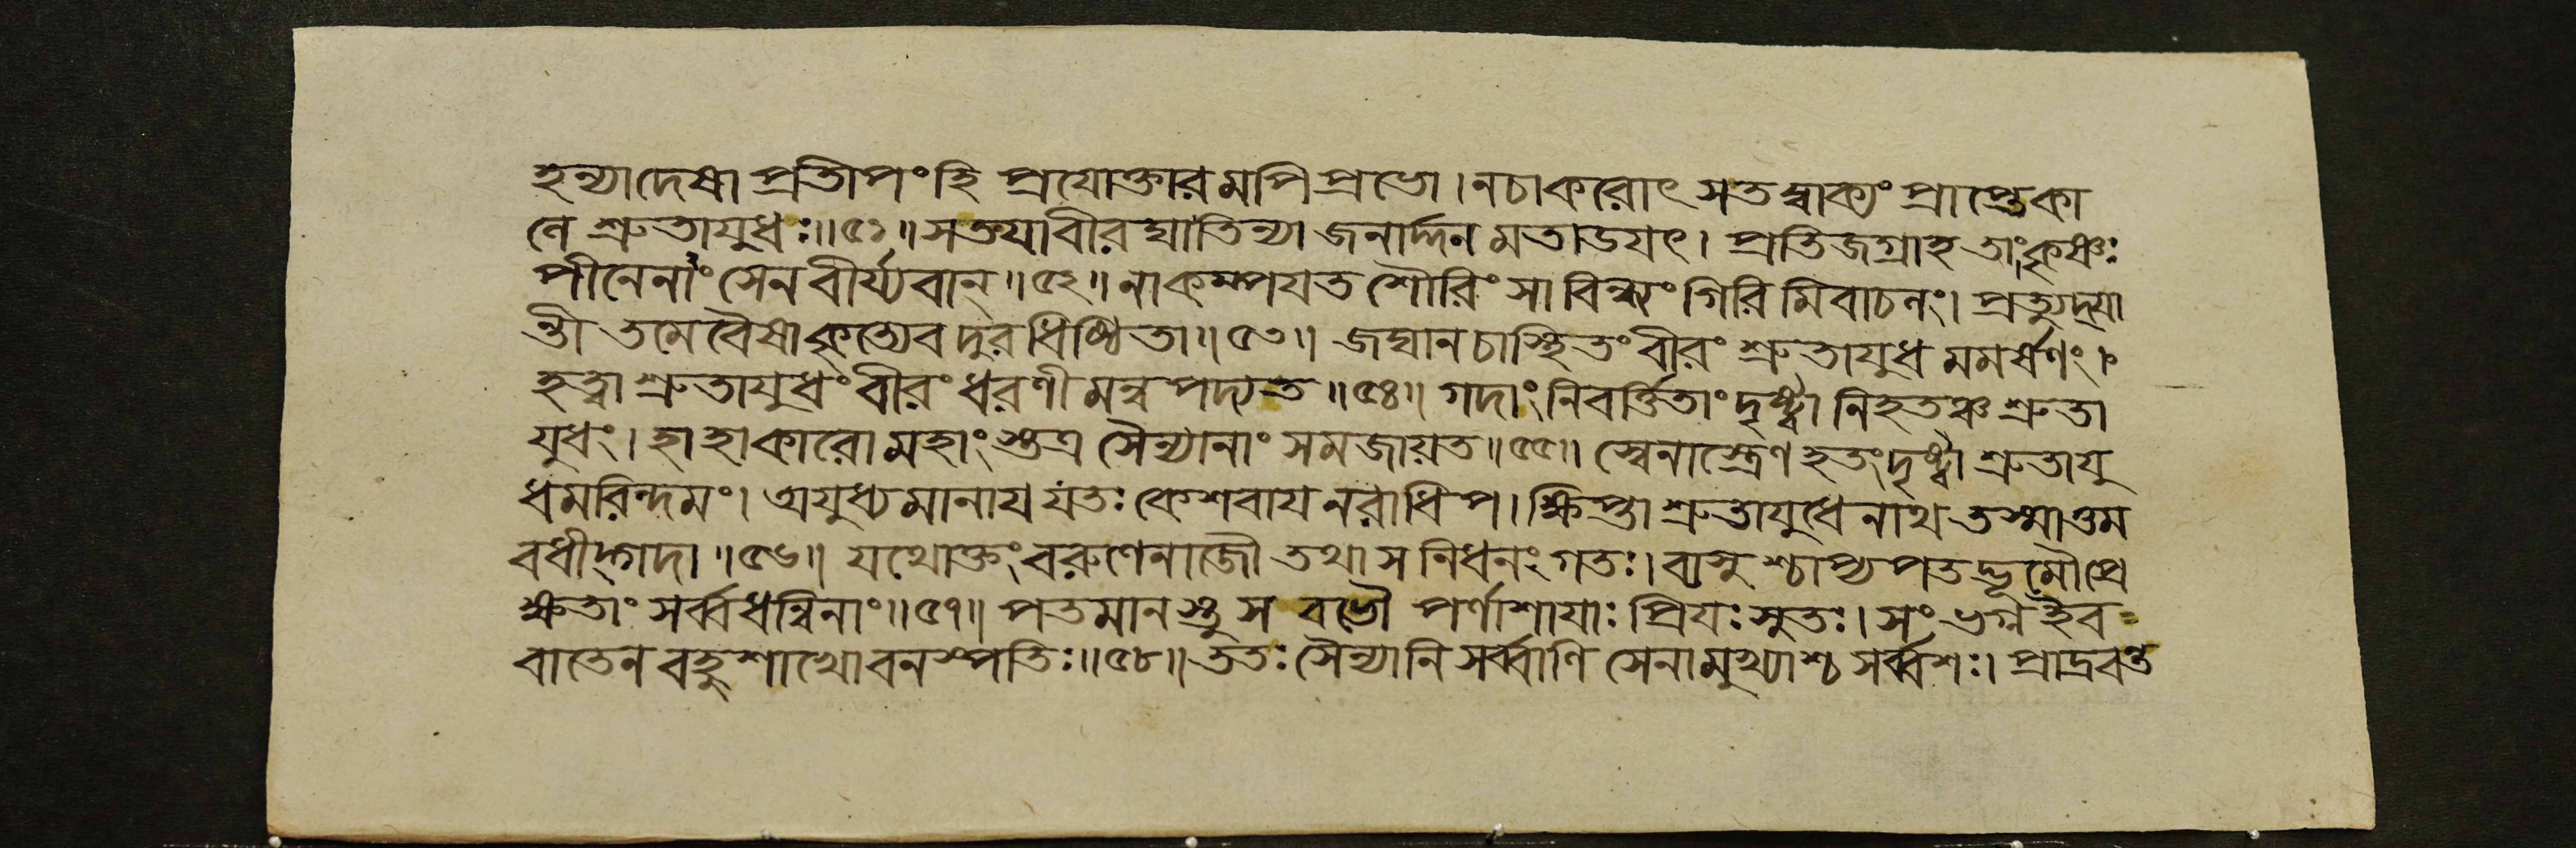 হন্যাদেষা প্রতীপংহি প্রযোক্তারমপিপ্রভো।নচাকরোৎ সতদ্বাক্যং প্রাপ্তেকা
লে শ্রুতাযুধঃ॥৫১॥সতযাবীরঘাতিন্যা জনার্দ্দনমতাডযৎ। প্রতিজগ্রাহতাংকৃষ্ণঃ
পীনেনাংসেনবীর্য্যবান্॥৫২॥নাকম্পযতশৌরিং সাবিন্ধ্যংগিরিমিবাচলং। প্রত্যুদ্যা
ন্তী তমেবৈষা কৃত্যেবদুরধিষ্ঠিতা॥৫৩॥ জঘানচাস্থিতংবীরং শ্রুতাযুধমমর্ষণং।
হত্বা শ্রুতাযুধং বীরং ধরণীমন্বপদ্যত॥৫৪॥ গদাং নিবর্ত্তিতাং দৃষ্ট্বা নিহতঞ্চ শ্রুতা
যুধং। হাহাকারোমহাংস্তত্র সৈন্যানাং সমজায়ত॥৫৫॥ স্বেনাস্ত্রেণ হতং দৃষ্ট্বা শ্রুতাযু
ধমরিন্দমং। অযুধ্যমানাযযতঃ কেশবাযনরাধিপ। ক্ষিপ্তা শ্রুতাযুধেনাথ তস্মাত্তম
বধীদ্গদা॥৫৬॥ যথোক্তংবরুণেনাজৌ তথা স নিধনংগতঃ।ব্যসুশ্চাপ্যপতদ্ভূমৌপ্রে
ক্ষতাং সর্ব্বধন্বিনাং॥৫৭॥ পতমানস্তু স বভৌ পর্ণাশাযাঃ প্রিযঃসুতঃ। সংভগ্নইব
বাতেনবহুশাখোবনস্পতিঃ॥৫৮॥ ততঃসৈন্যানিসর্ব্বাণি সেনামুখ্যাশ্চ সর্ব্বশঃ। প্রাদ্রবন্ত